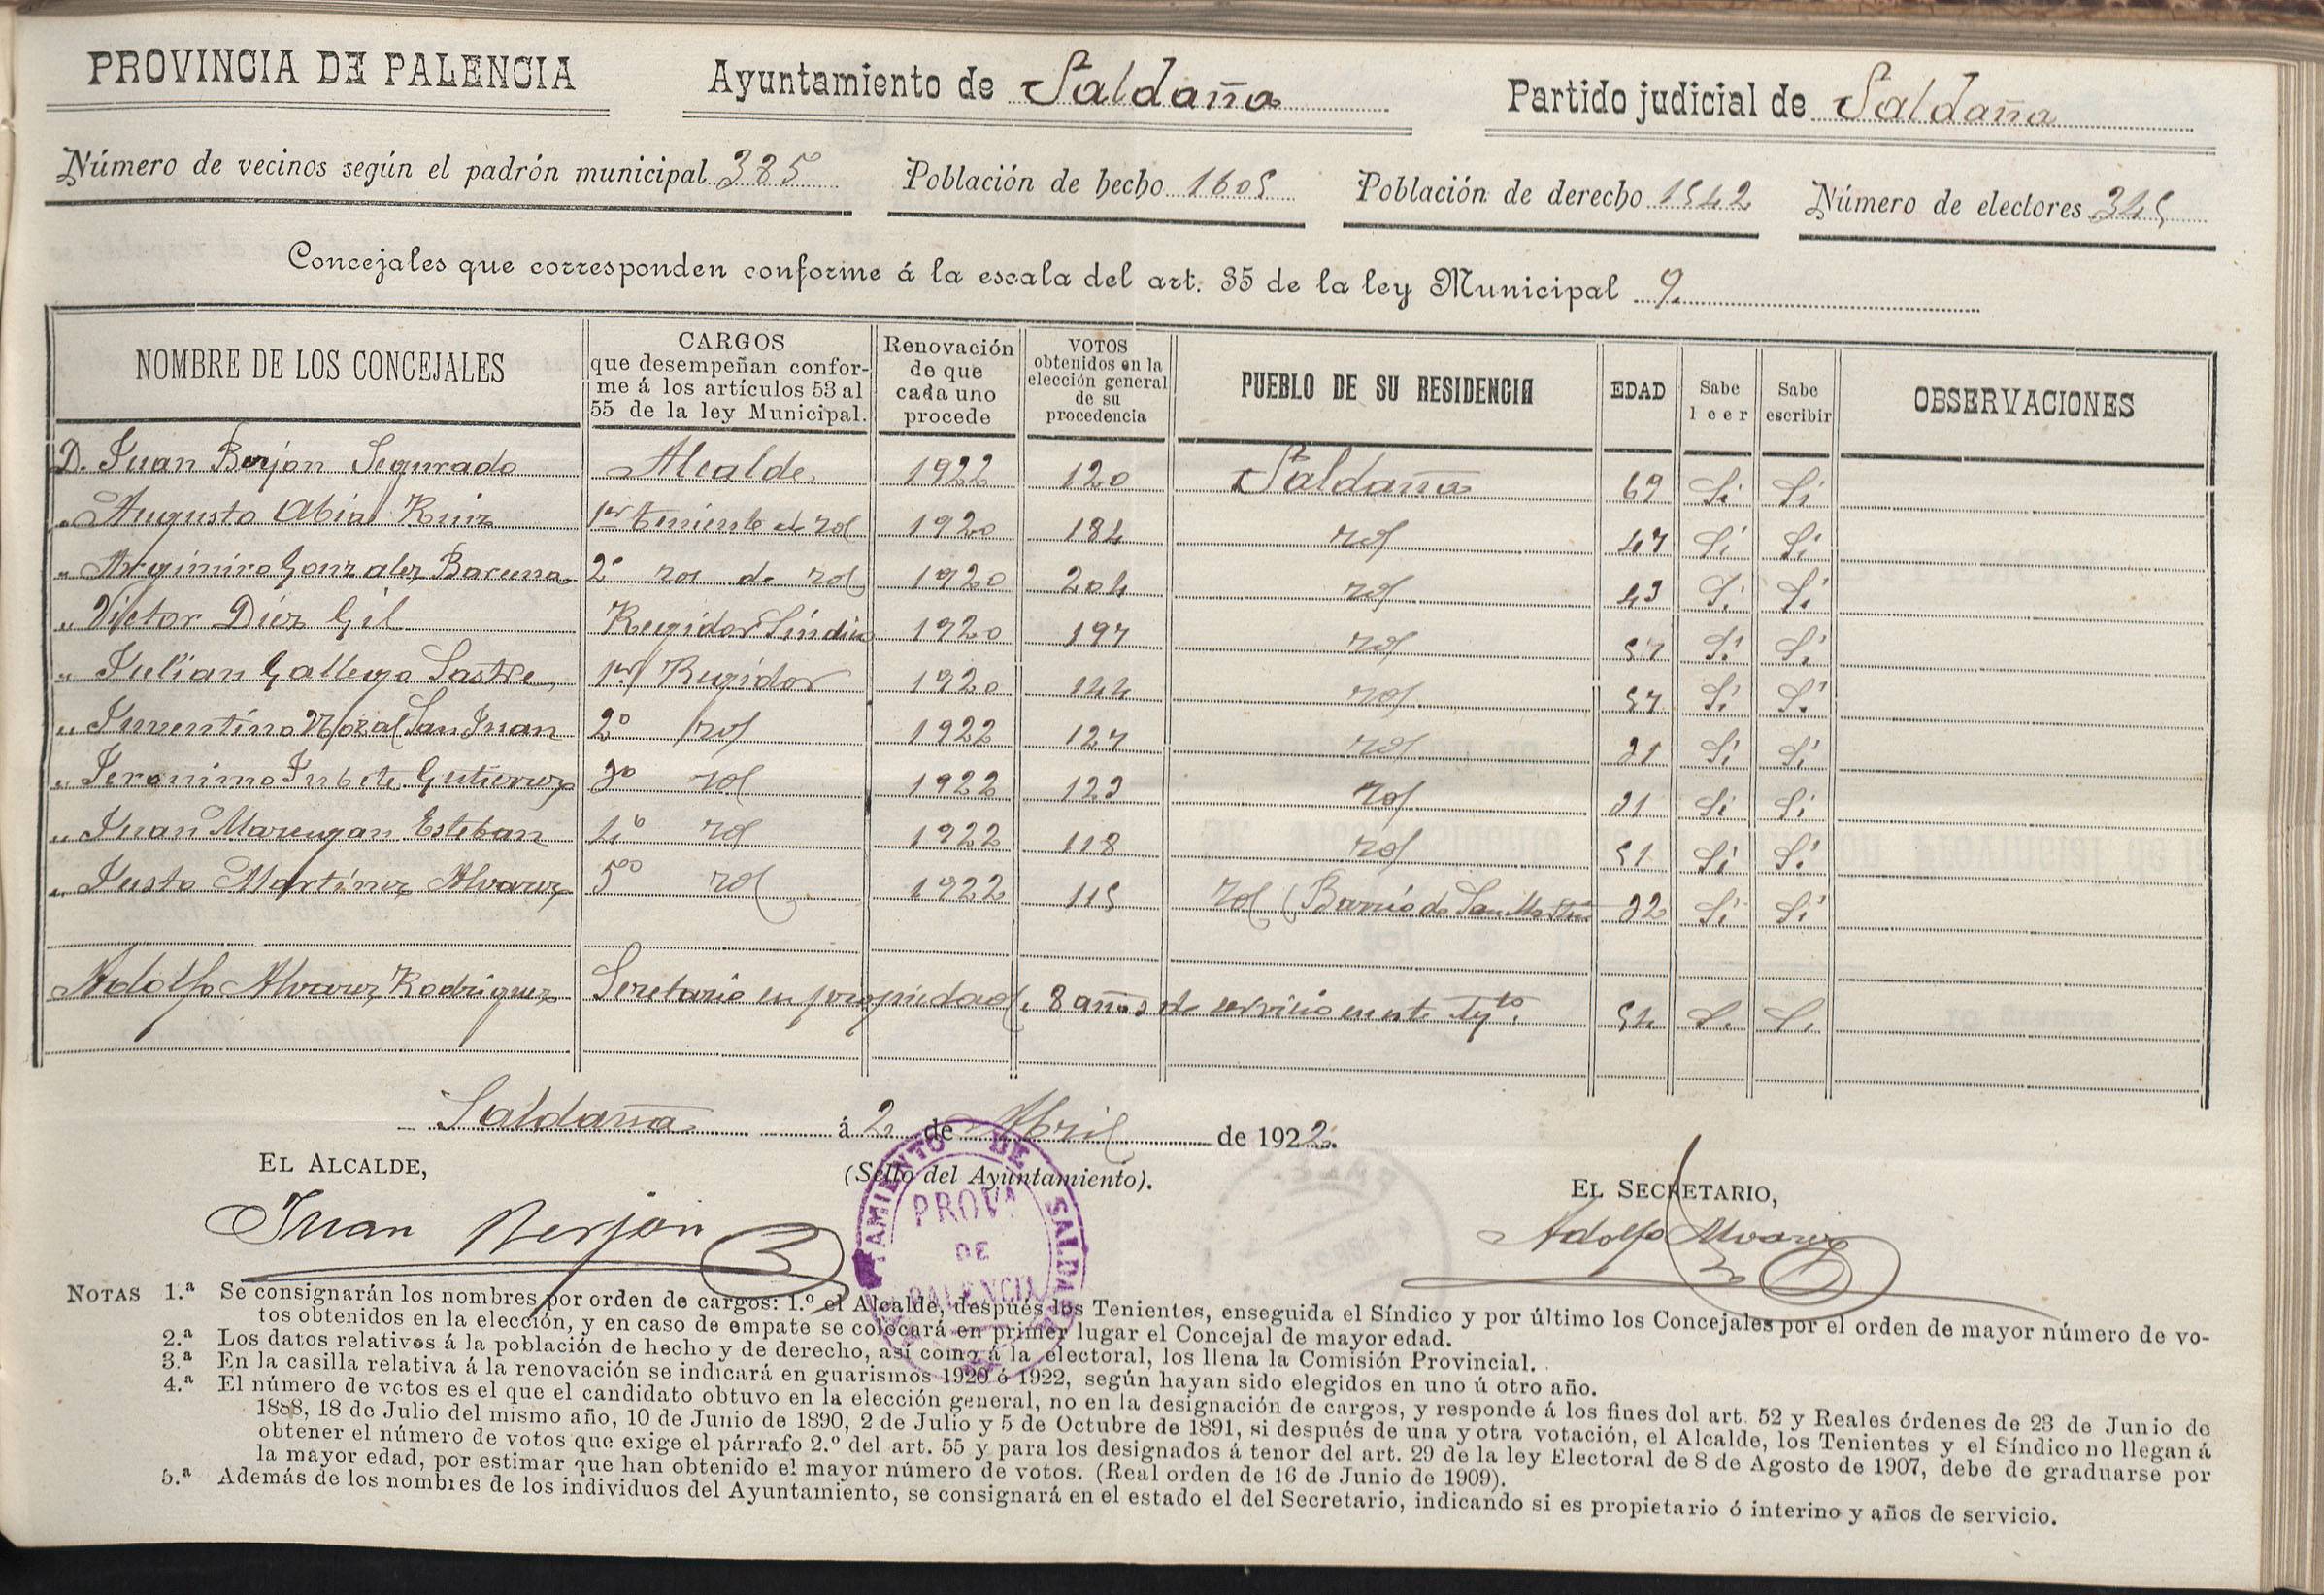 PROVINCIA DE PALENCIA Ayuntamiento de Saldaña Partido judicial de Saldaña
Número de vecinos según el padrón municipal 385 Población de hecho 1605 Población de derecho 1542 Número de electores 345
Concejales que corresponden conforme á la escala del art. 35 de la ley Municipal 9.
NOMBRE DE LOS CONCEJALES
CARGOS
que desempeñan confor-
me á los artículos 53 al
55 de la ley Municipal.
Renovación
de que
cada uno
procede
VOTOS
obtenidos en la
elección general
de su
procedencia
PUEBLO DE SU RESIDENCIA
EDAD
Sabe
leer
Sabe
escribir
OBSERVACIONES
D. Juan Berjon Segurado Alcalde 1922 120 Saldaña 69 Si Si
" Augusto Abia Ruiz 1er teniente de 1920 184 47 Si Si
" Argimiro Gonzalez Barcena 2º de 1920 204 43 Si Si
" Victor Diez Gil Regidor Síndico 1920 197 57 Si Si
" Julian Gallego Sastre 1er Regidor 1920 144 57 Si Si
" Juventino Moral San Juan 2º 1922 127 31 Si Si
" Jeronimo Gutierrez 3º 1922 123 31 Si Si
" Juan Marcugan Esteban 4º 1922 118 51 Si Si
" Justo Martínez Alvarez 5º 1922 115 (Barrio de San Martín 32 Si Si
Adolfo Alvarez Rodriguez Secretario en propiedad, 8 años de servicio en este Aytº. 54 Si Si
Saldaña á 2 de Abril de 1922.
EL ALCALDE,
(Sello del Ayuntamiento).
EL SECRETARIO,
Juan Berjon
AYUNTAMIENTO DE SALDAÑA
PROVA
DE
PALENCIA
Adolfo Alvarez
NOTAS 1.ª Se consignarán los nombres por orden de cargos: 1.º el Alcalde, después los Tenientes, enseguida el Síndico y por último los Concejales por el orden de mayor número de vo-
tos obtenidos en la elección, y en caso de empate se colocará en primer lugar el Concejal de mayor edad.
2.ª Los datos relativos á la población de hecho y de derecho, así como á la electoral, los llena la Comisión Provincial.
3.ª En la casilla relativa á la renovación se indicará en guarismos 1920 ó 1922, según hayan sido elegidos en uno ú otro año.
4.ª El número de votos es el que el candidato obtuvo en la elección general, no en la designación de cargos, y responde á los fines del art. 52 y Reales órdenes de 23 de Junio de
1888, 18 de Julio del mismo año, 10 de Junio de 1890, 2 de Julio y 5 de Octubre de 1891, si después de una y otra votación, el Alcalde, los Tenientes y el Síndico no llegan á
obtener el número de votos que exige el párrafo 2.º del art. 55 y para los designados á tenor del art. 29 de la ley Electoral de 8 de Agosto de 1907, debe de graduarse por
la mayor edad, por estimar que han obtenido el mayor número de votos. (Real orden de 16 de Junio de 1909).
5.ª Además de los nombres de los individuos del Ayuntamiento, se consignará en el estado el del Secretario, indicando si es propietario ó interino y años de servicio.